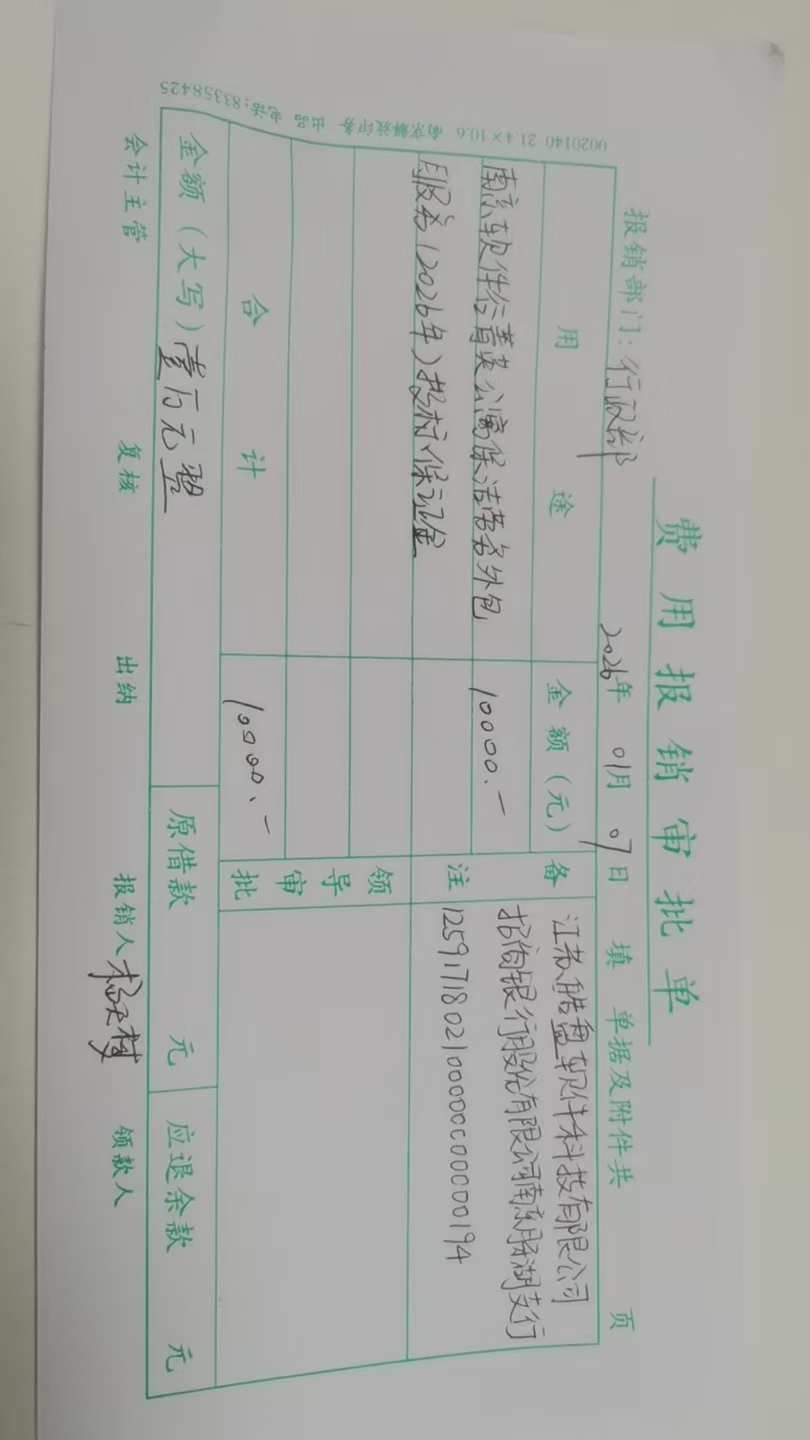 费用报销审批单
报销部门: 行政部 2026年 01月 07日 填 单据及附件共 页
用途 金额(元) 备注
南京软件谷菁英公寓保洁劳务外包 10000.—
服务(2026年)投标保证金
江苏皓盘软件科技有限公司
招商银行股份有限公司南京月牙湖支行
125917180210000000000194
领导审批
合计 10000.—
金额(大写) 壹万元整 原借款 元 应退余款 元
会计主管 复核 出纳 报销人 领款人
0020140 21.4×10.6 南京解放印务 出品 电话:83358425